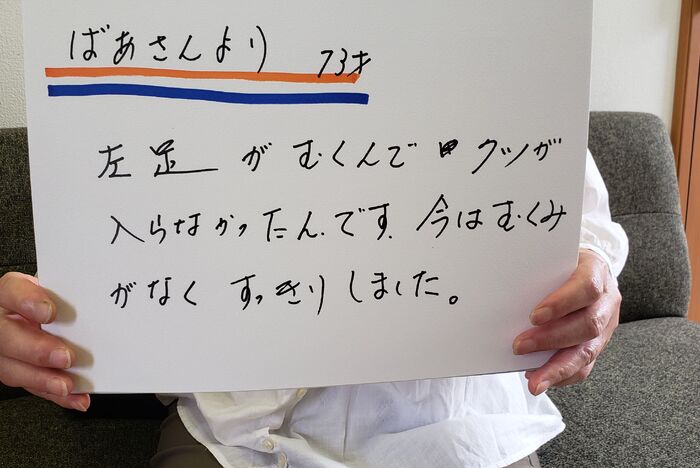 ばあさんより 73才
左足がむくんでクツが
入らなかったんです. 今はむくみ
がなくすっきりしました。